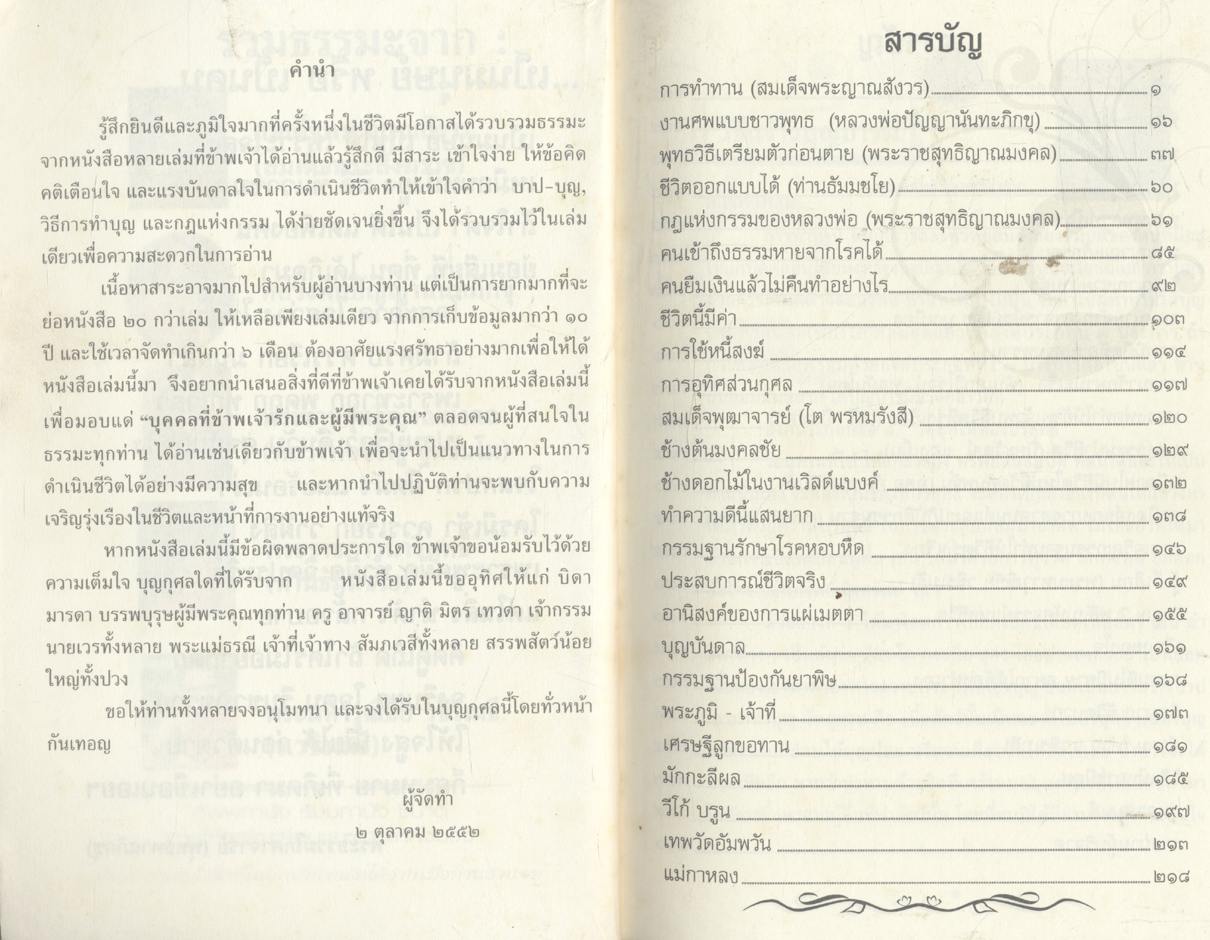 คำนำ
รู้สึกยินดีและภูมิใจมากที่ครั้งหนึ่งในชีวิตมีโอกาสได้รวบรวมธรรมะ
จากหนังสือหลายเล่มที่ข้าพเจ้าได้อ่านแล้วรู้สึกดี มีสาระ เข้าใจง่าย ให้ข้อคิด
คติเตือนใจ และแรงบันดาลใจในการดำเนินชีวิตทำให้เข้าใจคำว่า บาป-บุญ,
วิธีการทำบุญ และกฎแห่งกรรม ได้ง่ายชัดเจนยิ่งขึ้น จึงได้รวบรวมไว้ในเล่ม
เดียวเพื่อความสะดวกในการอ่าน
เนื้อหาสาระอาจมากไปสำหรับผู้อ่านบางท่าน แต่เป็นการยากมากที่จะ
ย่อหนังสือ ๒๐ กว่าเล่ม ให้เหลือเพียงเล่มเดียว จากการเก็บข้อมูลมากว่า ๑๐
ปี และใช้เวลาจัดทำเกินกว่า ๖ เดือน ต้องอาศัยแรงศรัทธาอย่างมากเพื่อให้ได้
หนังสือเล่มนี้มา จึงอยากนำเสนอสิ่งที่ดีที่ข้าพเจ้าเคยได้รับจากหนังสือเล่มนี้
เพื่อมอบแด่ “บุคคลที่ข้าพเจ้ารักและผู้มีพระคุณ” ตลอดจนผู้ที่สนใจใน
ธรรมะทุกท่าน ได้อ่านเช่นเดียวกับข้าพเจ้า เพื่อจะนำไปเป็นแนวทางในการ
ดำเนินชีวิตได้อย่างมีความสุข และหากนำไปปฏิบัติท่านจะพบกับความ
เจริญรุ่งเรืองในชีวิตและหน้าที่การงานอย่างแท้จริง
หากหนังสือเล่มนี้มีข้อผิดพลาดประการใด ข้าพเจ้าขอน้อมรับไว้ด้วย
ความเต็มใจ บุญกุศลใดที่ได้รับจาก หนังสือเล่มนี้ขออุทิศให้แก่ บิดา
มารดา บรรพบุรุษผู้มีพระคุณทุกท่าน ครู อาจารย์ ญาติ มิตร เทวดา เจ้ากรรม
นายเวรทั้งหลาย พระแม่ธรณี เจ้าที่เจ้าทาง สัมภเวสีทั้งหลาย สรรพสัตว์น้อย
ใหญ่ทั้งปวง
ขอให้ท่านทั้งหลายจงอนุโมทนา และจงได้รับในบุญกุศลนี้โดยทั่วหน้า
กันเทอญ
ผู้จัดทำ
๒ ตุลาคม ๒๕๕๒
สารบัญ
การทำทาน (สมเด็จพระญาณสังวร) ๑
งานศพแบบชาวพุทธ (หลวงพ่อปัญญานันทะภิกขุ) ๑๖
พุทธวิธีเตรียมตัวก่อนตาย (พระราชสุทธิญาณมงคล) ๓๗
ชีวิตออกแบบได้ (ท่านธัมมชโย) ๖๐
กฎแห่งกรรมของหลวงพ่อ (พระราชสุทธิญาณมงคล) ๖๑
คนเข้าถึงธรรมหายจากโรคได้ ๘๕
คนยืมเงินแล้วไม่คืนทำอย่างไร ๙๒
ชีวิตนี้มีค่า ๑๐๓
การใช้หนี้สงฆ์ ๑๑๔
การอุทิศส่วนกุศล ๑๑๗
สมเด็จพุฒาจารย์ (โต พรหมรังสี) ๑๒๐
ช้างต้นมงคลชัย ๑๒๙
ช้างดอกไม้ในงานเวิลด์แบงค์ ๑๓๒
ทำความดีนี้แสนยาก ๑๓๘
กรรมฐานรักษาโรคหอบหืด ๑๔๖
ประสบการณ์ชีวิตจริง ๑๔๙
อานิสงค์ของการแผ่เมตตา ๑๕๕
บุญบันดาล ๑๖๑
กรรมฐานป้องกันยาพิษ ๑๖๘
พระภูมิ - เจ้าที่ ๑๗๓
เศรษฐีลูกขอทาน ๑๘๑
มักกะลีผล ๑๘๕
วีโก้ บรูน ๑๙๗
เทพวัดอัมพวัน ๒๑๓
แม่กาหลง ๒๑๘